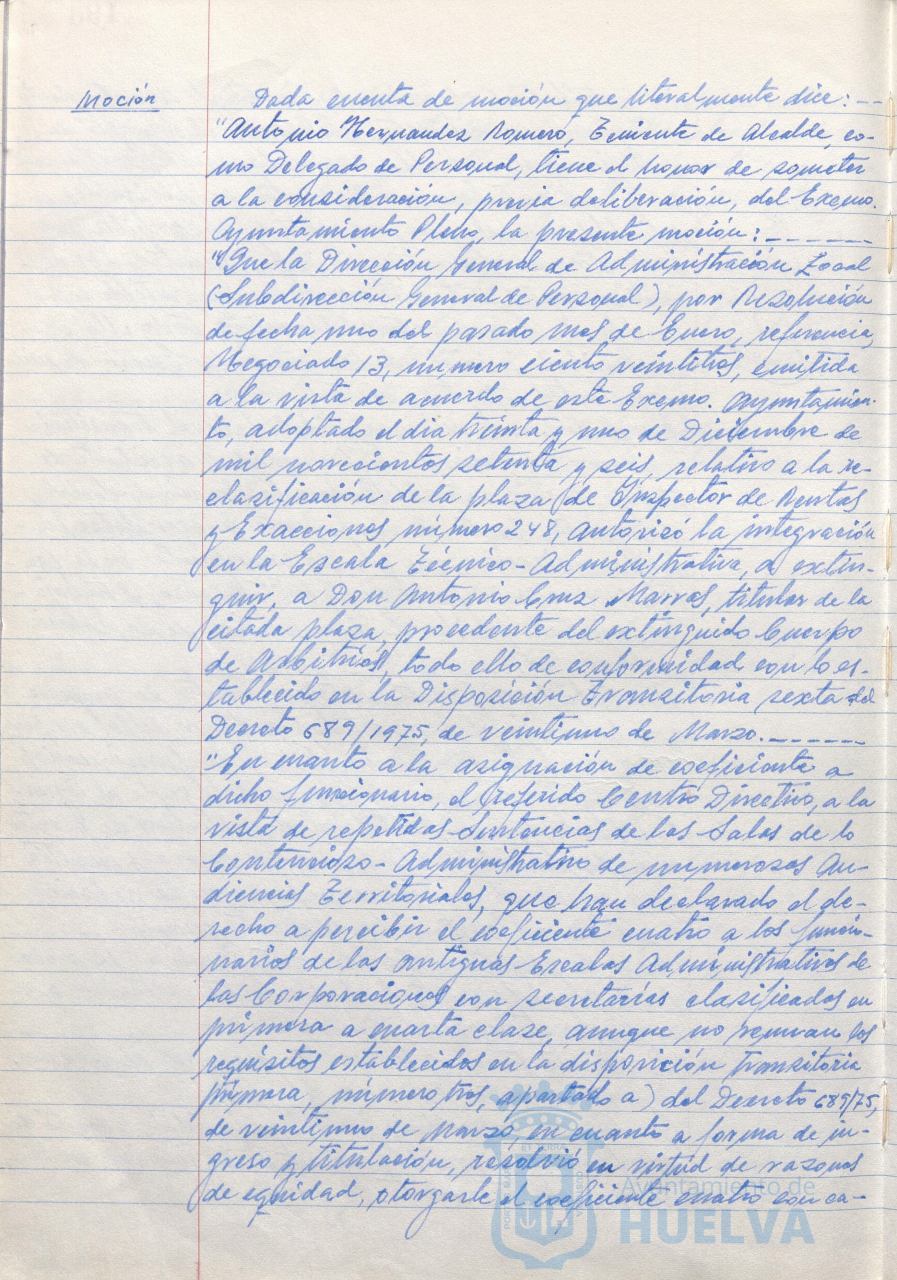 Moción
Dada cuenta de moción que literalmente dice: --
"Antonio Hernandez Romero, Teniente de Alcalde, co-
mo Delegado de Personal, tiene el honor de someter
a la consideración, previa deliberación, del Excmo.
Ayuntamiento Pleno, la presente moción: ------
"Que la Dirección General de Administración Local
(Subdirección General de Personal), por Resolución
de fecha uno del pasado mes de Enero, referencia,
Negociado 13, numero ciento veintitres, emitida
a la vista de acuerdo de este Excmo. Ayuntamien-
to, adoptado el dia treinta y uno de Diciembre de
mil novecientos setenta y seis, relativo a la re-
clasificación de la plaza de Inspector de Rentas
y Exacciones número 248, autorizó la integración
en la Escala Técnico-Administrativa, a extin-
guir, a Don Antonio Cruz Marras, titular de la
citada plaza, procedente del extinguido Cuerpo
de Arbitrios, todo ello de conformidad con lo es-
tablecido en la Disposición Transitoria sexta del
Decreto 689/1975, de veintiuno de Marzo. ------
"En cuanto a la asignación de coeficiente a
dicho funcionario, el referido Centro Directivo, a la
vista de repetidas Sentencias de las Salas de lo
Contencioso-Administrativo de numerosas Au-
diencias Territoriales, que han declarado el de-
recho a percibir el coeficiente cuatro a los funcio-
narios de las antiguas Escalas Administrativas de
las Corporaciones con secretarías clasificadas en
primera a cuarta clase, aunque no reunan los
requisitos establecidos en la disposición transitoria
primera, número tres, apartado a) del Decreto 689/75,
de veintiuno de marzo en cuanto a forma de in-
greso y titulación, resolvió en virtud de razones
de equidad, otorgarle el coeficiente cuatro con ca-
Ayuntamiento de
HUELVA